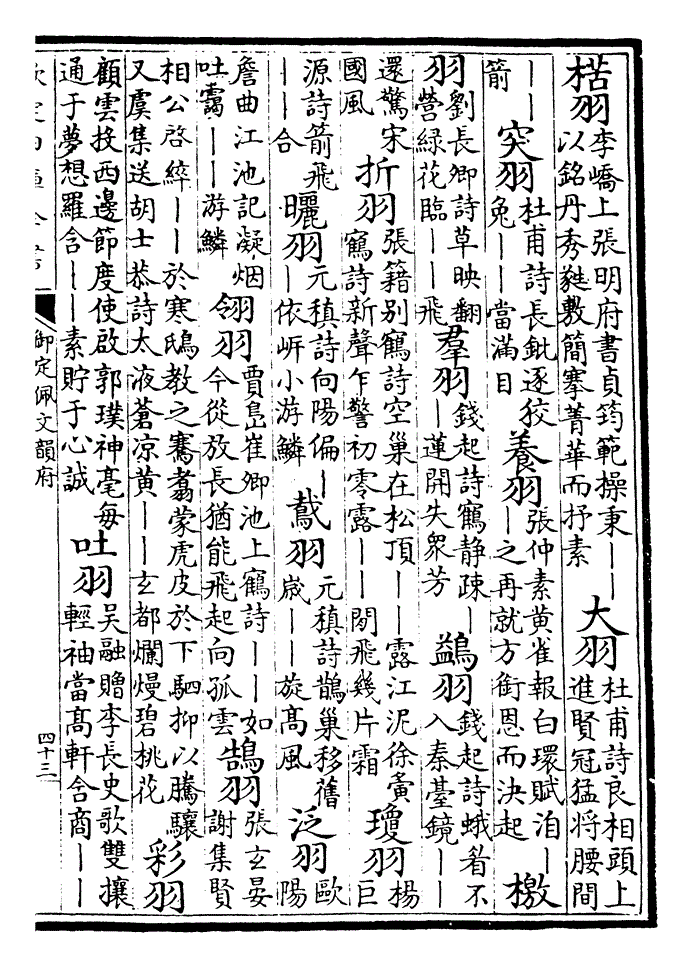 楛羽 李嶠上張明府書貞筠範操秉——以銘丹秀蕤敷簡搴菁華而抒素 大羽 杜甫詩良相頭上進賢冠猛將腰間
——箭 突羽 杜甫詩長鈚逐狡兔——當滿目 養羽 張仲素黃雀報白環賦洎——之再就方銜恩而決起 檄
羽 劉長卿詩草映翻營綠花臨——飛 羣羽 錢起詩鶴静疎——蓮開失衆芳 鷁羽 錢起詩蛾眉不入秦臺鏡——
還驚宋國風 折羽 張籍别鶴詩空巢在松頂——露江泥徐夤鶴詩新聲乍警初零露——閒飛幾片霜 瓊羽 楊巨
源詩箭飛——合 曬羽 元稹詩向陽偏——依岍小游鱗 鷙羽 元稹詩鵲巢移舊歲——旋高風 泛羽 歐陽
詹曲江池記凝烟吐靄——游鱗 翎羽 賈島崔卿池上鶴詩——如今從放長猶能飛起向孤雲 鵠羽 張玄晏謝集賢
相公啓綷——於寒鴟教之騫翥蒙虎皮於下駟抑以騰驤又虞集送胡士恭詩太液蒼凉黃——玄都爛熳碧桃花 彩羽
顧雲投西邊節度使啟郭璞神毫每通于夢想羅含——素貯于心誠 吐羽 吳融贈李長史歌雙攘輕袖當高軒含商——
欽定四庫全書
御定佩文韻府
四十三